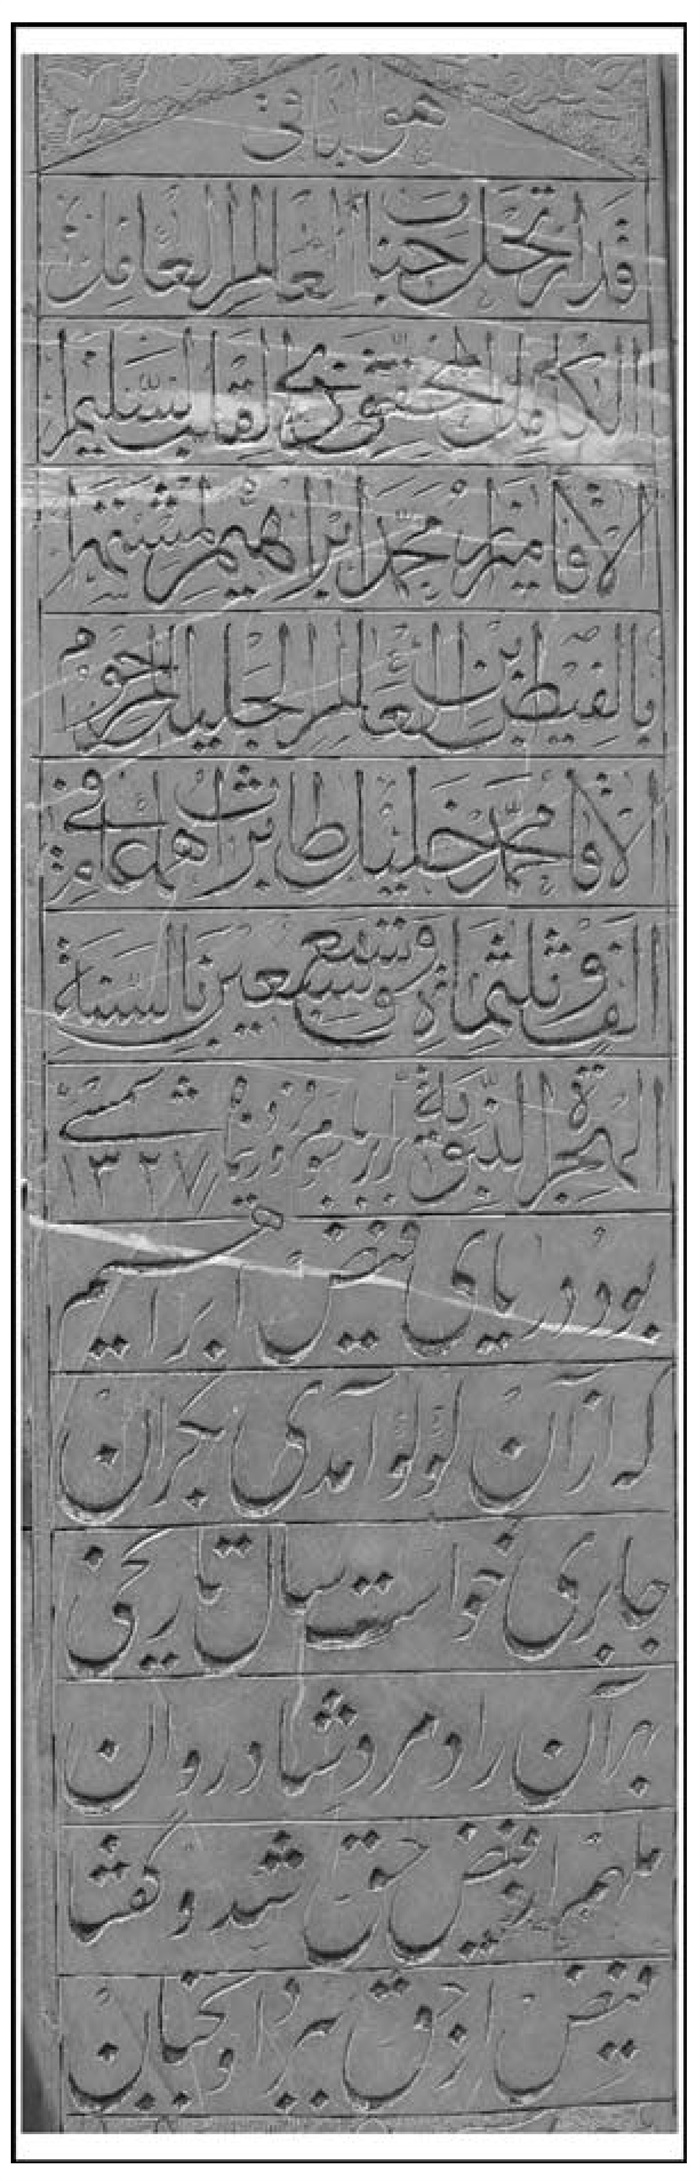 هو الباقی
قد ارتحل جناب العالم العامل
الکامل المتقی ذی القلب السلیم
الآقا میرزا محمد ابراهیم المشتهر
بالفیض ابن العالم الجلیل المرحوم
الآقا محمد خلیل طاب ثراهما فی عام
الف و ثلثمائة و تسع و تسعین بالسنة
الهجرة النبویة برابر با سوم فروردین ماه شمسی ۱۳۲۷
بود دریای فیض ابراهیم
که از آن لؤلؤ آمدی بحران
جابری خواست سال تاریخی
بر آن رادمرد شادروان
ملهم از فیض حق شد و گفتا
فیض از حق بیزد او بجنان